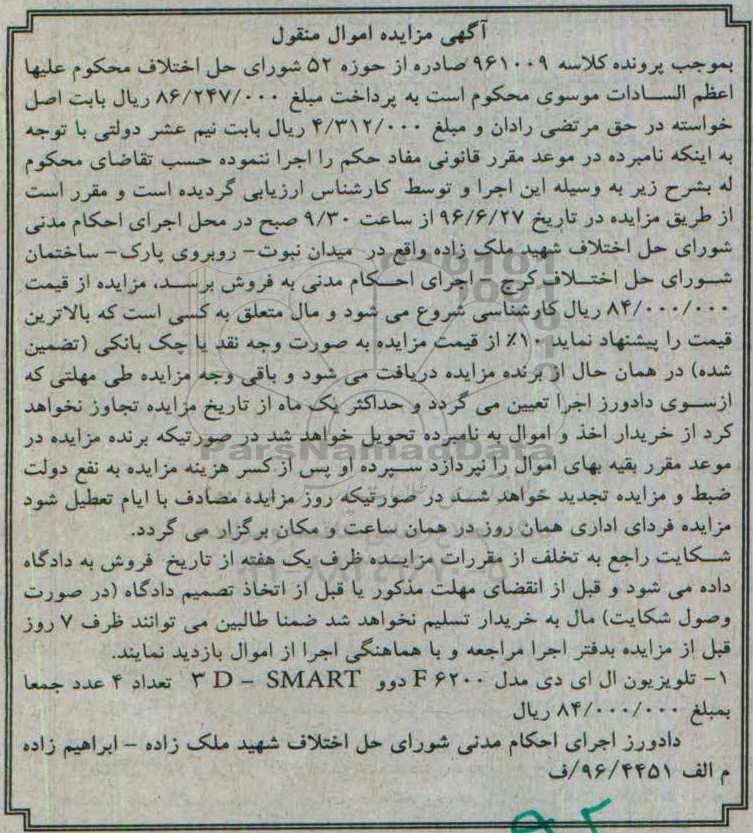 آگهی مزایده اموال منقول
بموجب پرونده کلاسه ۹۶۱۰۰۹ صادره از حوزه ۵۲ شورای حل اختلاف محکوم علیها
اعظم السادات موسوی محکوم است به پرداخت مبلغ ۸۶/۲۴۷/۰۰۰ ریال بابت اصل
خواسته در حق مرتضی رادان و مبلغ ۴/۳۱۲/۰۰۰ ریال بابت نیم عشر دولتی با توجه
به اینکه نامبرده در موعد مقرر قانونی مفاد حکم را اجرا ننموده حسب تقاضای محکوم
له بشرح زیر به وسیله این اجرا و توسط کارشناس ارزیابی گردیده است و مقرر است
از طریق مزایده در تاریخ ۹۶/۶/۲۷ از ساعت ۹/۳۰ صبح در محل اجرای احکام مدنی
شورای حل اختلاف شهید ملک زاده واقع در میدان نبوت- روبروی پارک- ساختمان
شورای حل اختلاف کرج - اجرای احکام مدنی به فروش برسد، مزایده از قیمت
۸۴/۰۰۰/۰۰۰ ریال کارشناسی شروع می شود و مال متعلق به کسی است که بالاترین
قیمت را پیشنهاد نماید ۱۰٪ از قیمت مزایده به صورت وجه نقد یا چک بانکی (تضمین
شده) در همان حال از برنده مزایده دریافت می شود و باقی وجه مزایده طی مهلتی که
ازسوی دادورز اجرا تعیین می گردد و حداکثر یک ماه از تاریخ مزایده تجاوز نخواهد
کرد از خریدار اخذ و اموال به نامبرده تحویل خواهد شد در صورتیکه برنده مزایده در
موعد مقرر بقیه بهای اموال را نپردازد سپرده او پس از کسر هزینه مزایده به نفع دولت
ضبط و مزایده تجدید خواهد شد در صورتیکه روز مزایده مصادف با ایام تعطیل شود
مزایده فردای اداری همان روز در همان ساعت و مکان برگزار می گردد.
شکایت راجع به تخلف از مقررات مزایده ظرف یک هفته از تاریخ فروش به دادگاه
داده می شود و قبل از انقضای مهلت مذکور یا قبل از اتخاذ تصمیم دادگاه (در صورت
وصول شکایت) مال به خریدار تسلیم نخواهد شد ضمنا طالبین می توانند ظرف ۷ روز
قبل از مزایده بدفتر اجرا مراجعه و با هماهنگی اجرا از اموال بازدید نمایند.
۱- تلویزیون ال ای دی مدل F ۶۲۰۰ دوو ۳ D - SMART تعداد ۴ عدد جمعا
بمبلغ ۸۴/۰۰۰/۰۰۰ ریال
دادورز اجرای احکام مدنی شورای حل اختلاف شهید ملک زاده - ابراهیم زاده
م الف ۹۶/۴۴۵۱/ف
ParsNamadData